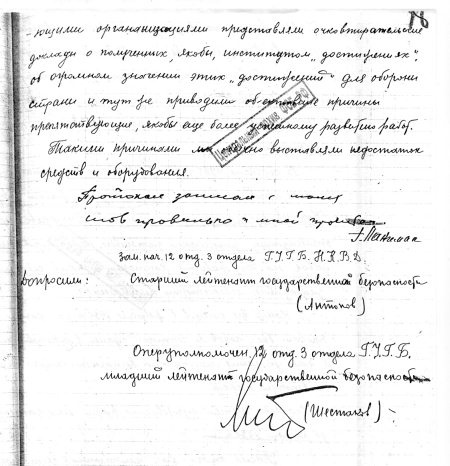 78
-ющими организациями представляли очковтирательские
доклады о полученных, якобы, институтом "достижениях",
об огромном значении этих "достижений" для обороны
страны и тут же приводили объективные причины
препятствующие, якобы еще более успешному развитию работ.
Такими причинами выставляли недостаток
средств и оборудования.
Протокол записан с моих
слов правильно и мной
Зам. нач. 12 отд. 3 отдела Г.У.Г.Б. Н.К.В.Д.
Допросили: Старший лейтенант государственной безопасности
(Антонов)
Оперуполномочен. 12 отд. 3 отдела Г.У.Г.Б.
младший лейтенант государственной безопасности
(Шестаков)